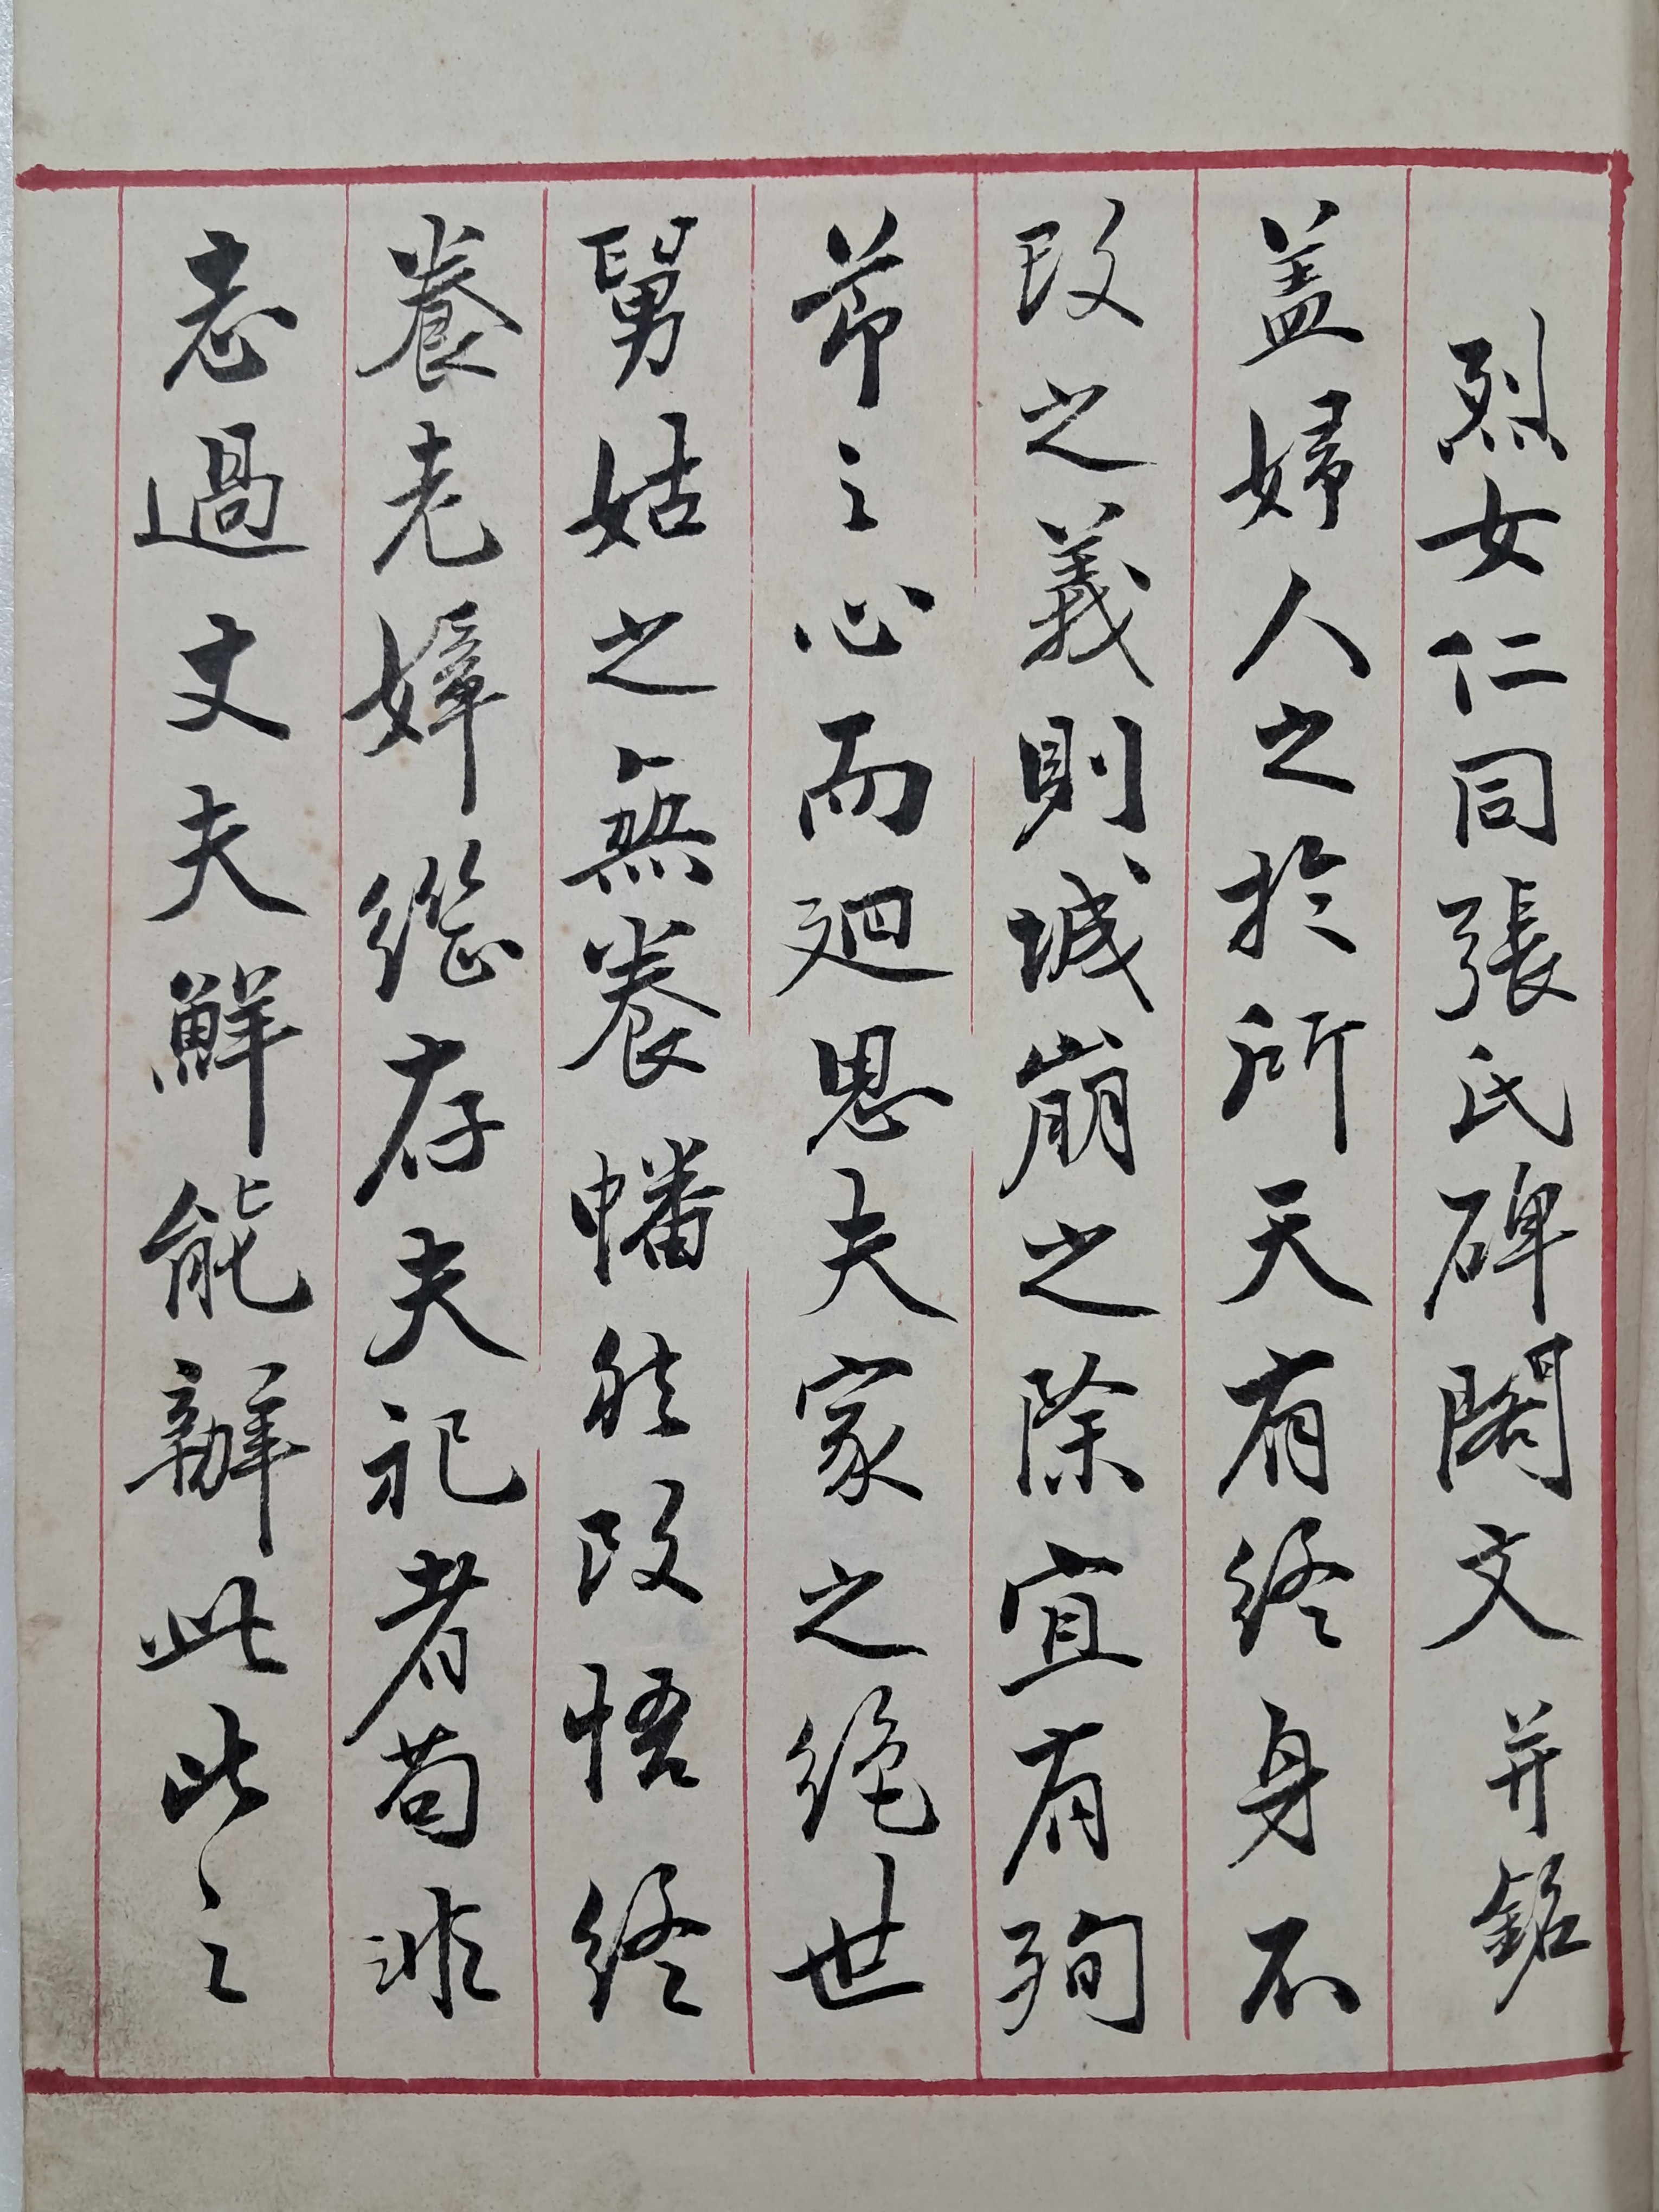 烈女仁同張氏碑閣文 并銘
盖婦人之於所天有終身不
改之義則城崩之除宜有殉
莭之心而廻思夫家之絶世
舅姑之無養幡然改悟終
養老嫜繼存夫祀者苟非
志過丈夫鮮能辦此此之